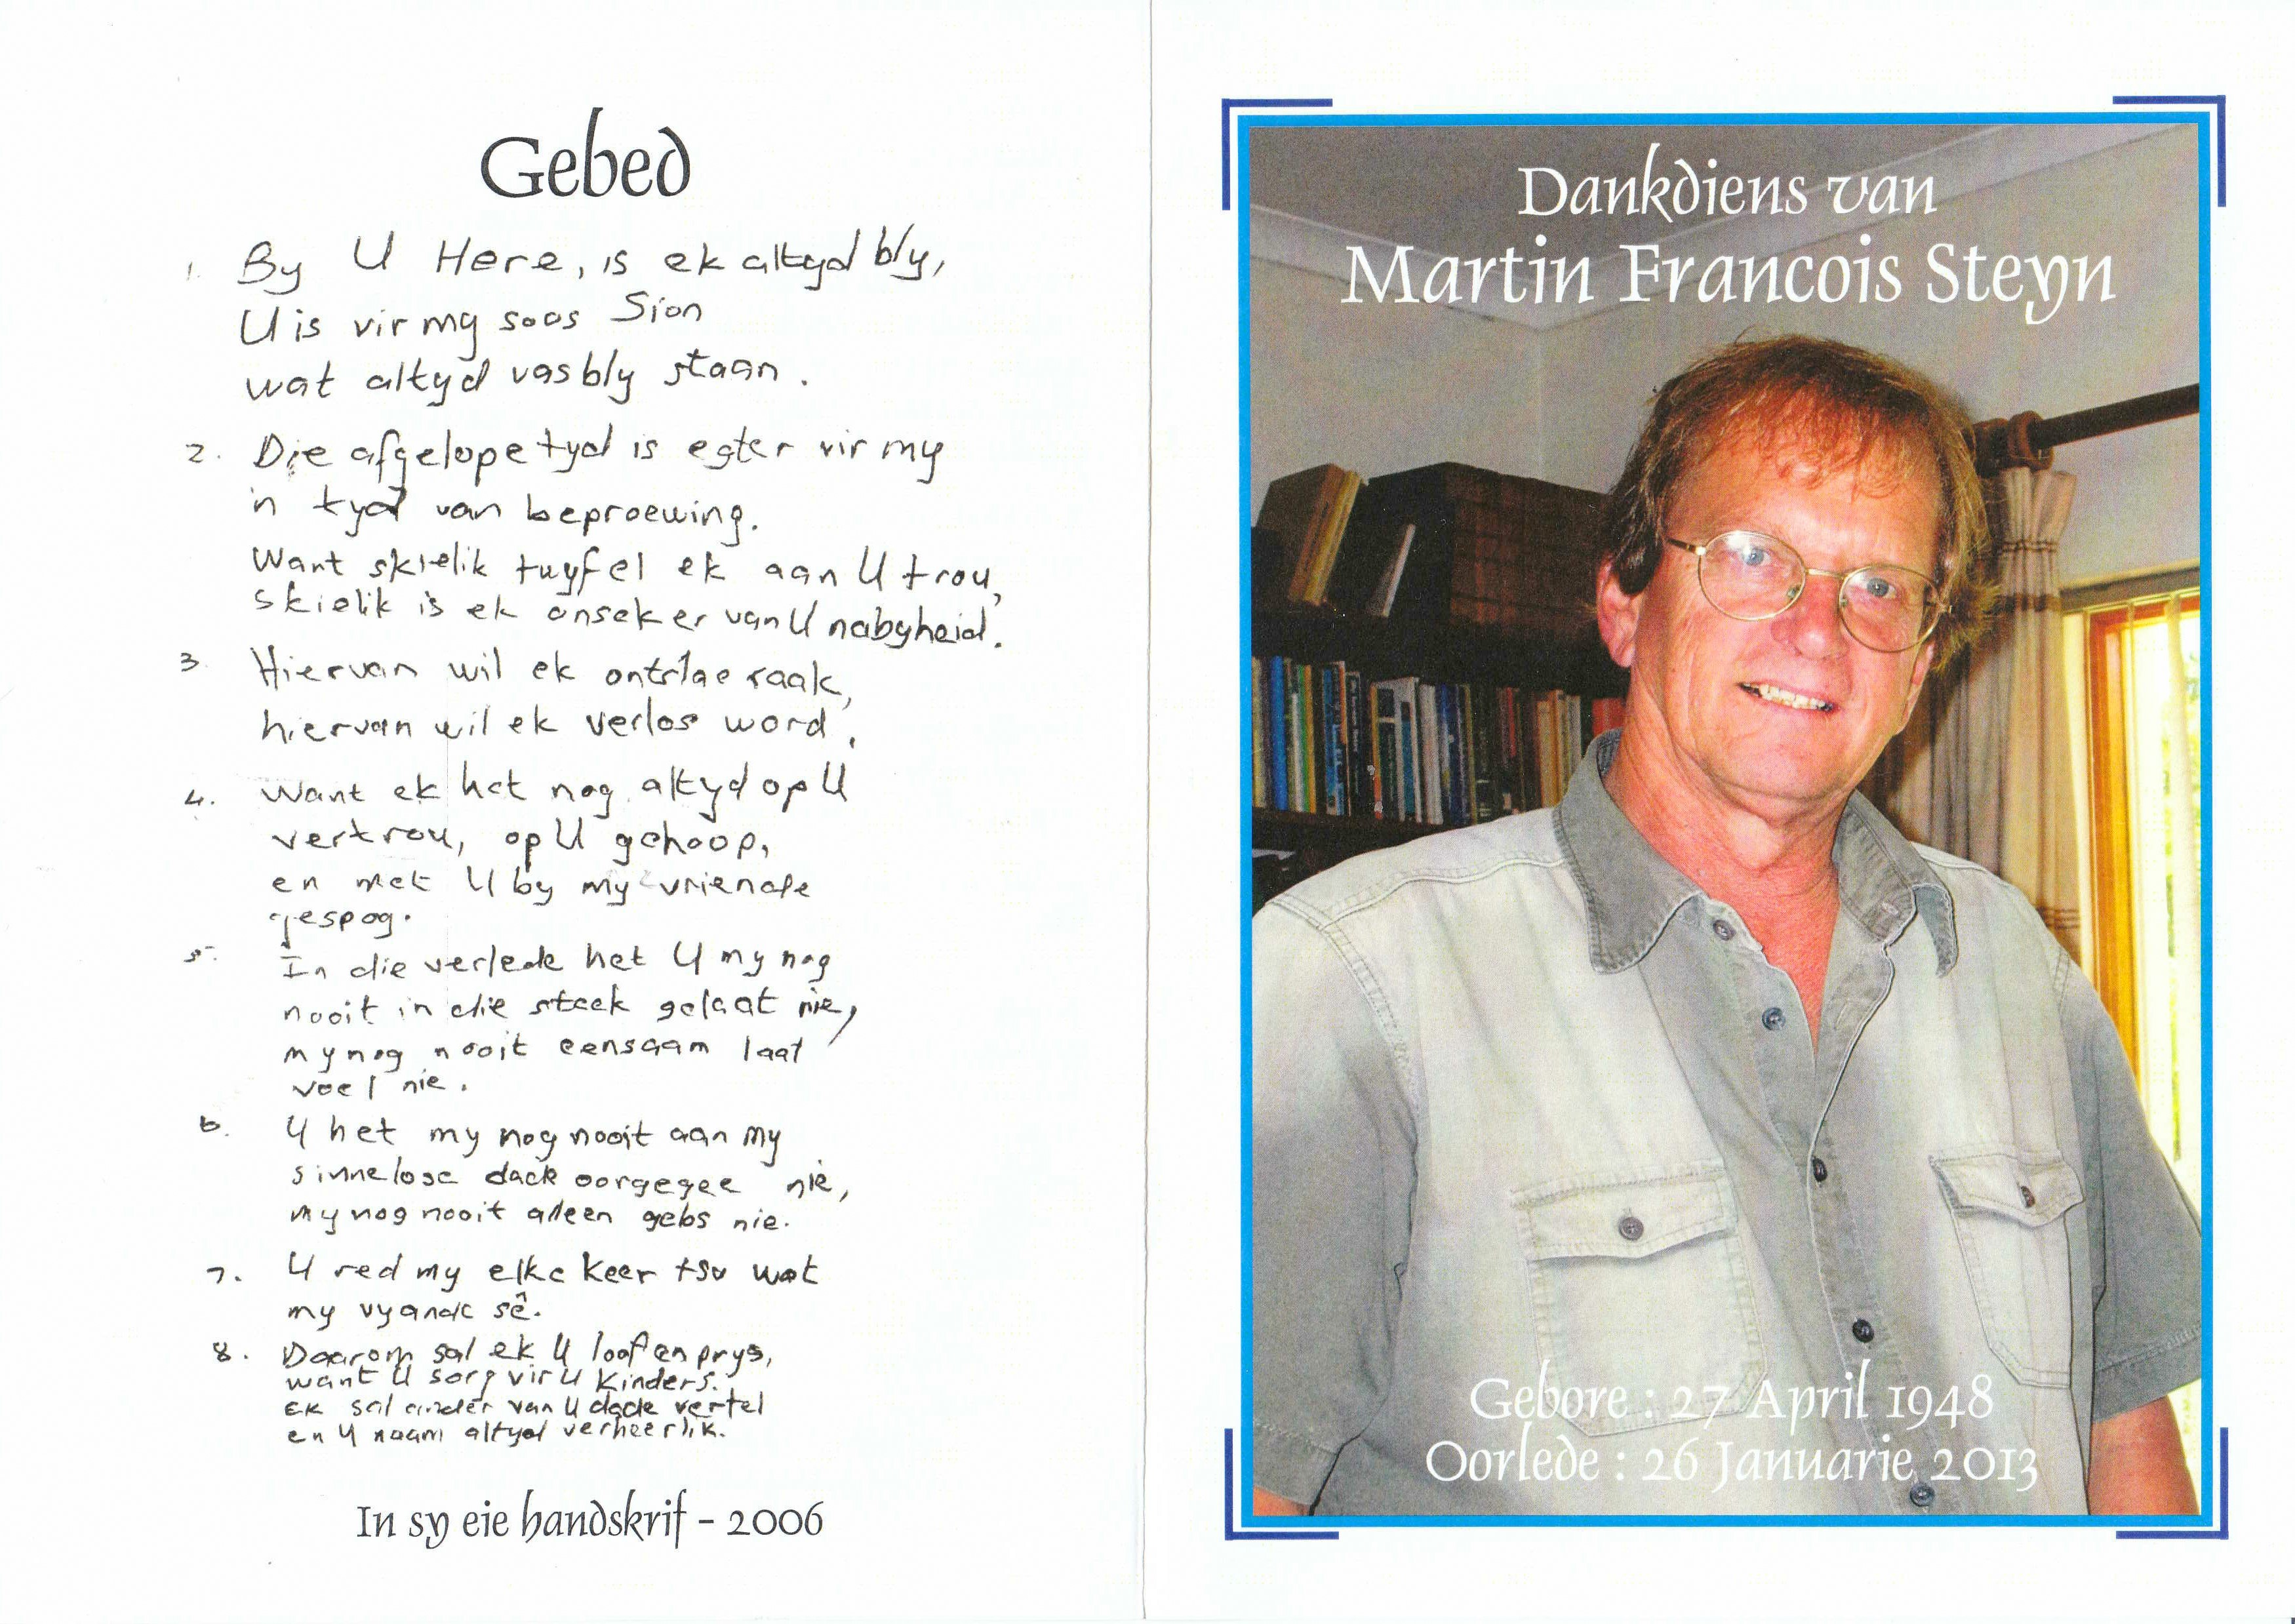 Gebed
1. By U Here, is ek altyd bly,
U is vir my soos Sion
wat altyd vas bly staan.
2. Die afgelope tyd is egter vir my
'n tyd van beproewing.
Want skielik twyfel ek aan U trou,
skielik is ek onseker van U nabyheid.
3. Hiervan wil ek ontslae raak,
hiervan wil ek verlos word.
4. Want ek het nog altyd op U
vertrou, op U gehoop,
en met U by my vriende
gespog.
5. In die verlede het U my nog
nooit in die steek gelaat nie,
my nog nooit eensaam laat
voel nie.
6. U het my nog nooit aan my
sinnelose dade oorgegee nie,
my nog nooit alleen gelos nie.
7. U red my elke keer tsv wat
my vyande sê.
8. Daarom sal ek U loof en prys,
want U sorg vir U kinders.
Ek sal ander van U dade vertel
en U naam altyd verheerlik.
In sy eie handskrif - 2006
Dankdiens van
Martin Francois Steyn
Gebore : 27 April 1948
Oorlede : 26 Januarie 2013